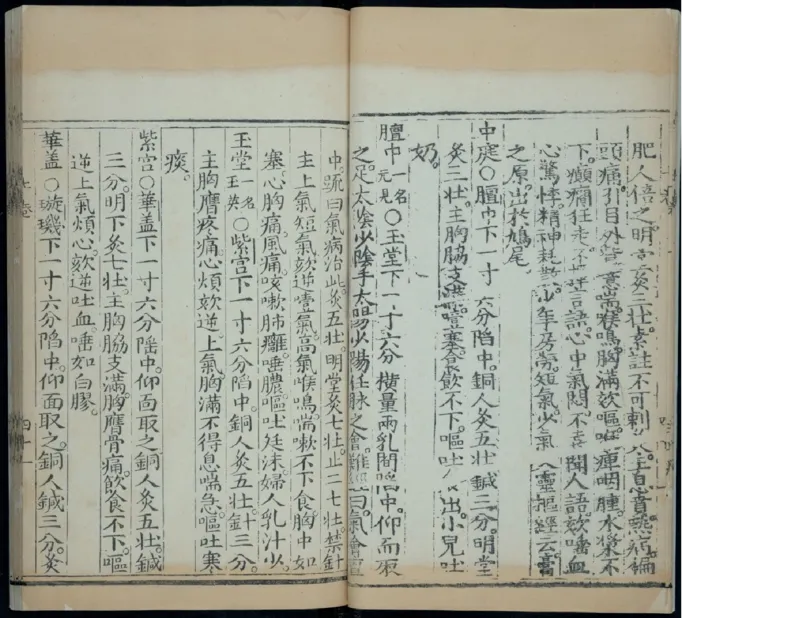 肥人倍之明堂灸三壯素註不可刺
頭痛引目外喘喉鳴胸滿欬嘔喉痺咽腫水漿不
下癲癇狂走不言語心中氣悶不喜聞人語欬唾血
心驚悸精神耗散少年房勞短氣少氣靈樞經云膏
之原出於鳩尾
中庭〇膻中下一寸六分陷中銅人灸五壯鍼三分明堂
灸三壯主胸脇支滿噎塞食飲不下嘔吐食出小兒吐
奶
膻中一名元見〇玉堂下一寸六分橫量兩乳間陷中仰而取
之足太陰少陰手太陽少陽任脉之會難經曰氣會膻
中疏曰氣病治此灸五壯明堂灸七壯止二七壯禁針
主上氣短氣欬逆噎氣高氣喉鳴喘嗽不下食胸中如
塞心胸痛風痛咳嗽肺癰唾膿嘔吐涎沫婦人乳汁少
玉堂一名玉英〇紫宮下一寸六分陷中銅人灸五壯針三分
主胸膺疼痛心煩欬逆上氣胸滿不得息喘急嘔吐寒
痰
紫宮〇華蓋下一寸六分陷中仰面取之銅人灸五壯鍼
三分明下灸七壯主胸脇支滿胸膺骨痛飲食不下嘔
逆上氣煩心欬逆吐血唾如白膠
華蓋〇璇璣下一寸六分陷中仰面取之銅人鍼三分灸